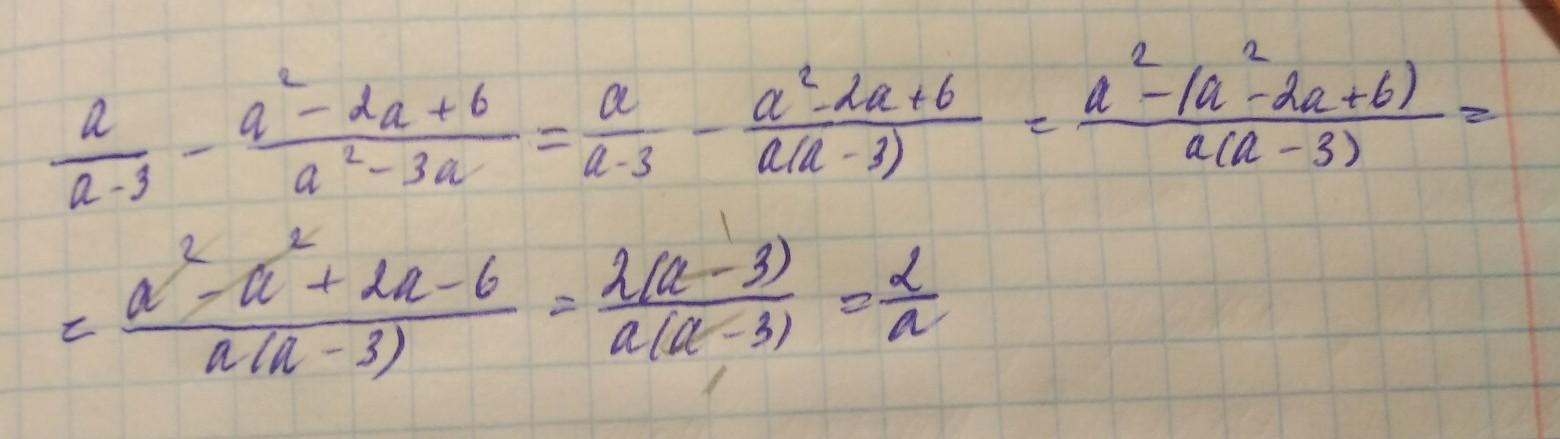 a/(a-3) - (a² - 2a + 6)/(a² - 3a) = a/(a-3) - (a² - 2a + 6)/(a(a - 3)) = (a² - (a² - 2a + 6))/(a(a - 3)) =
= (a² - a² + 2a - 6)/(a(a - 3)) = 2(a - 3)/(a(a - 3)) = 2/a